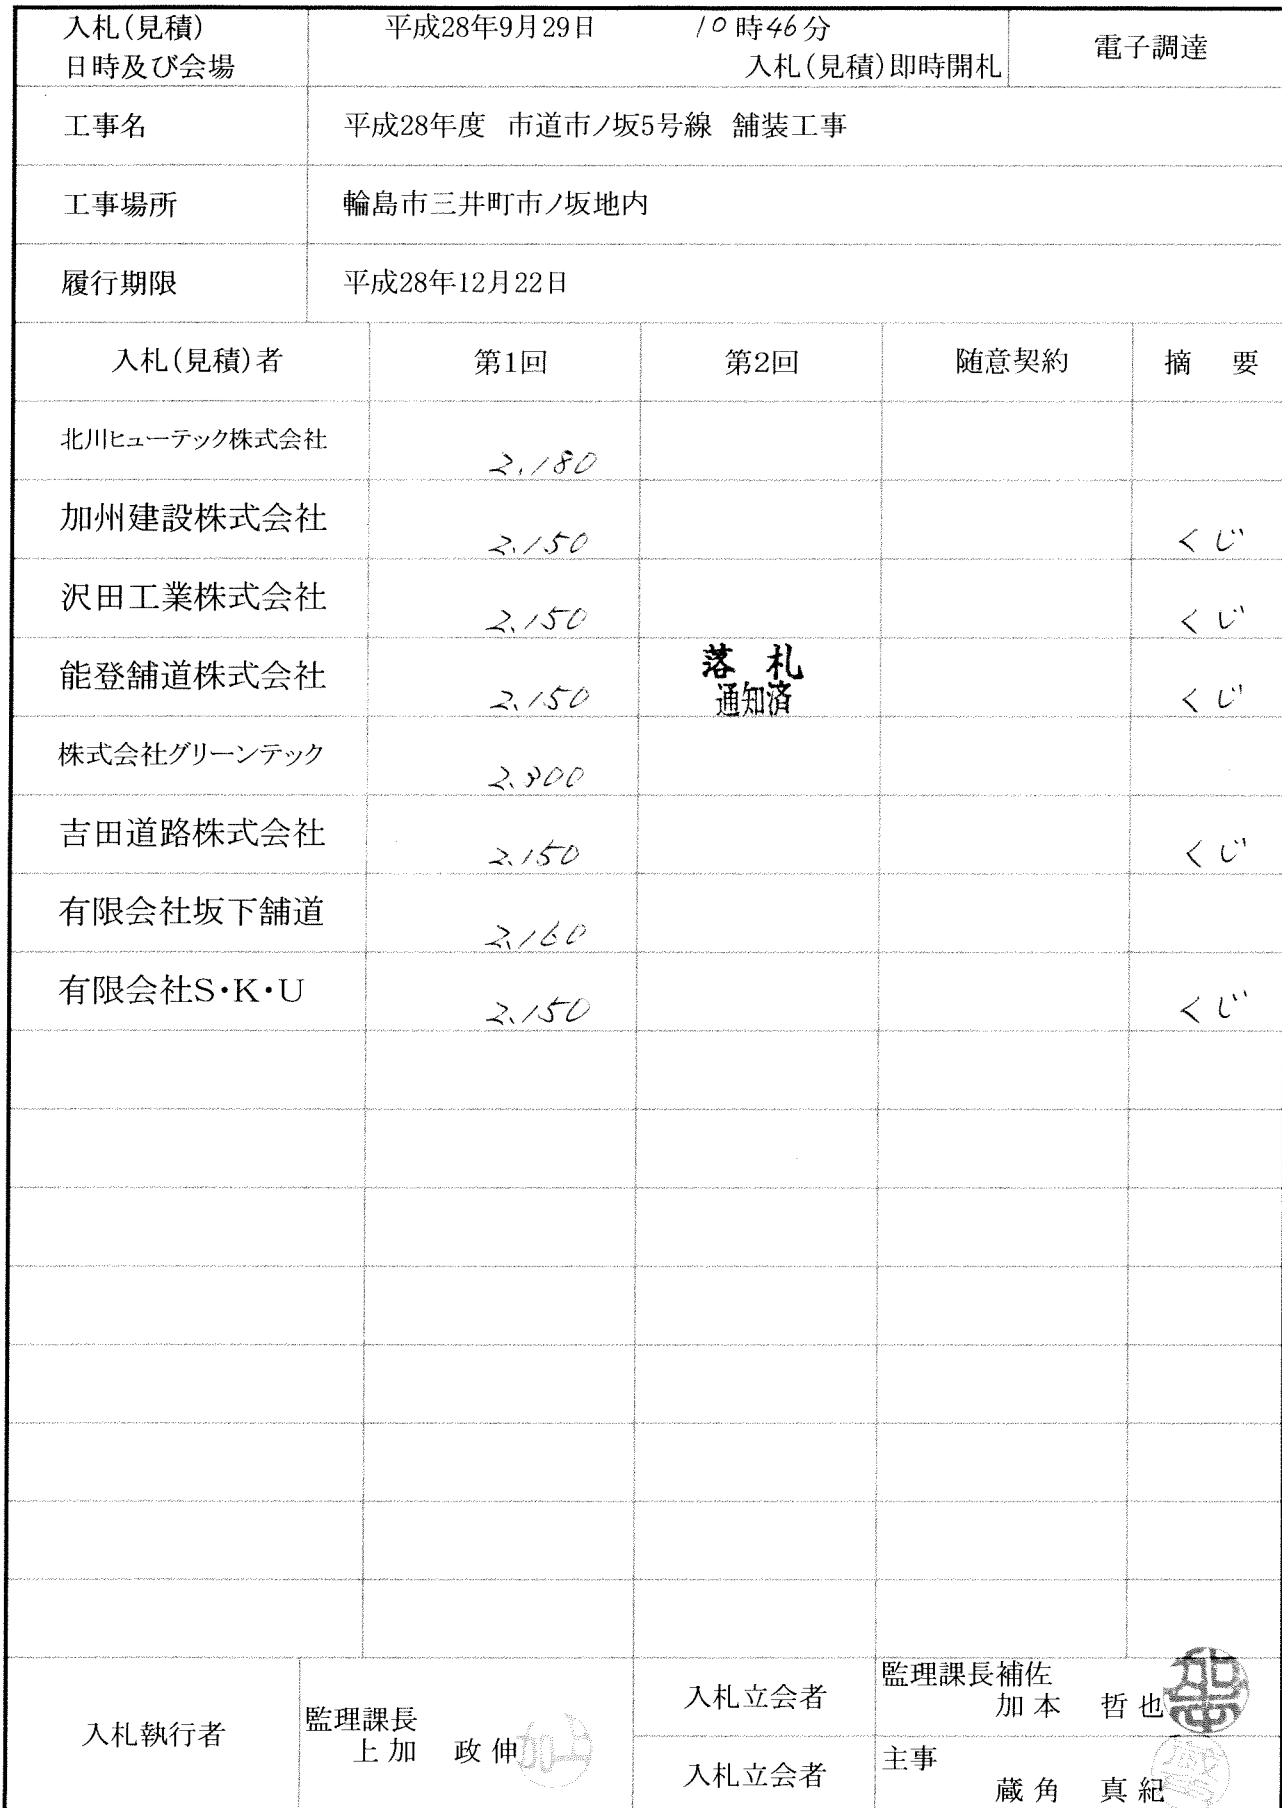 入札(見積) 平成28年9月29日 10時46分 電子調達
日時及び会場 入札(見積)即時開札
工事名 平成28年度 市道市ノ坂5号線 舗装工事
工事場所 輪島市三井町市ノ坂地内
履行期限 平成28年12月22日
入札(見積)者 第1回 第2回 随意契約 摘 要
北川ヒューテック株式会社 2,180
加州建設株式会社 2,150 くじ
沢田工業株式会社 2,150 くじ
能登舗道株式会社 2,150 落札 くじ
通知済
株式会社グリーンテック
吉田道路株式会社 2,150 くじ
有限会社坂下舗道 2,160
有限会社S・K・U 2,150 くじ
入札執行者 監理課長
上加 政伸
入札立会者 監理課長補佐
加本 哲也
入札立会者 主事
蔵角 真紀